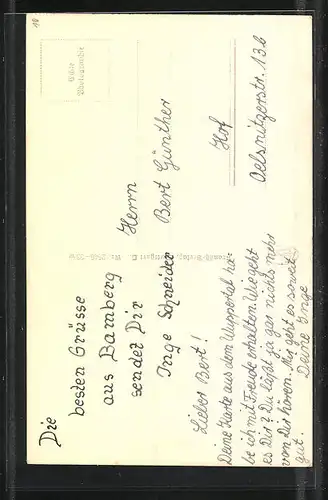 Die
besten Grüsse
aus Bamberg
sendet Dir
Inge Schneider
Lieber Bert!
Deine Karte aus dem Wuppertal ha-
be ich mit Freude erhalten. Wie geht
es Dir? Du läßt ja gar nichts mehr
von Dir hören. Mir geht es soweit
gut. Deine Inge
Herrn
Bert Günther
Hof
Oelsnitzerstr. 13b